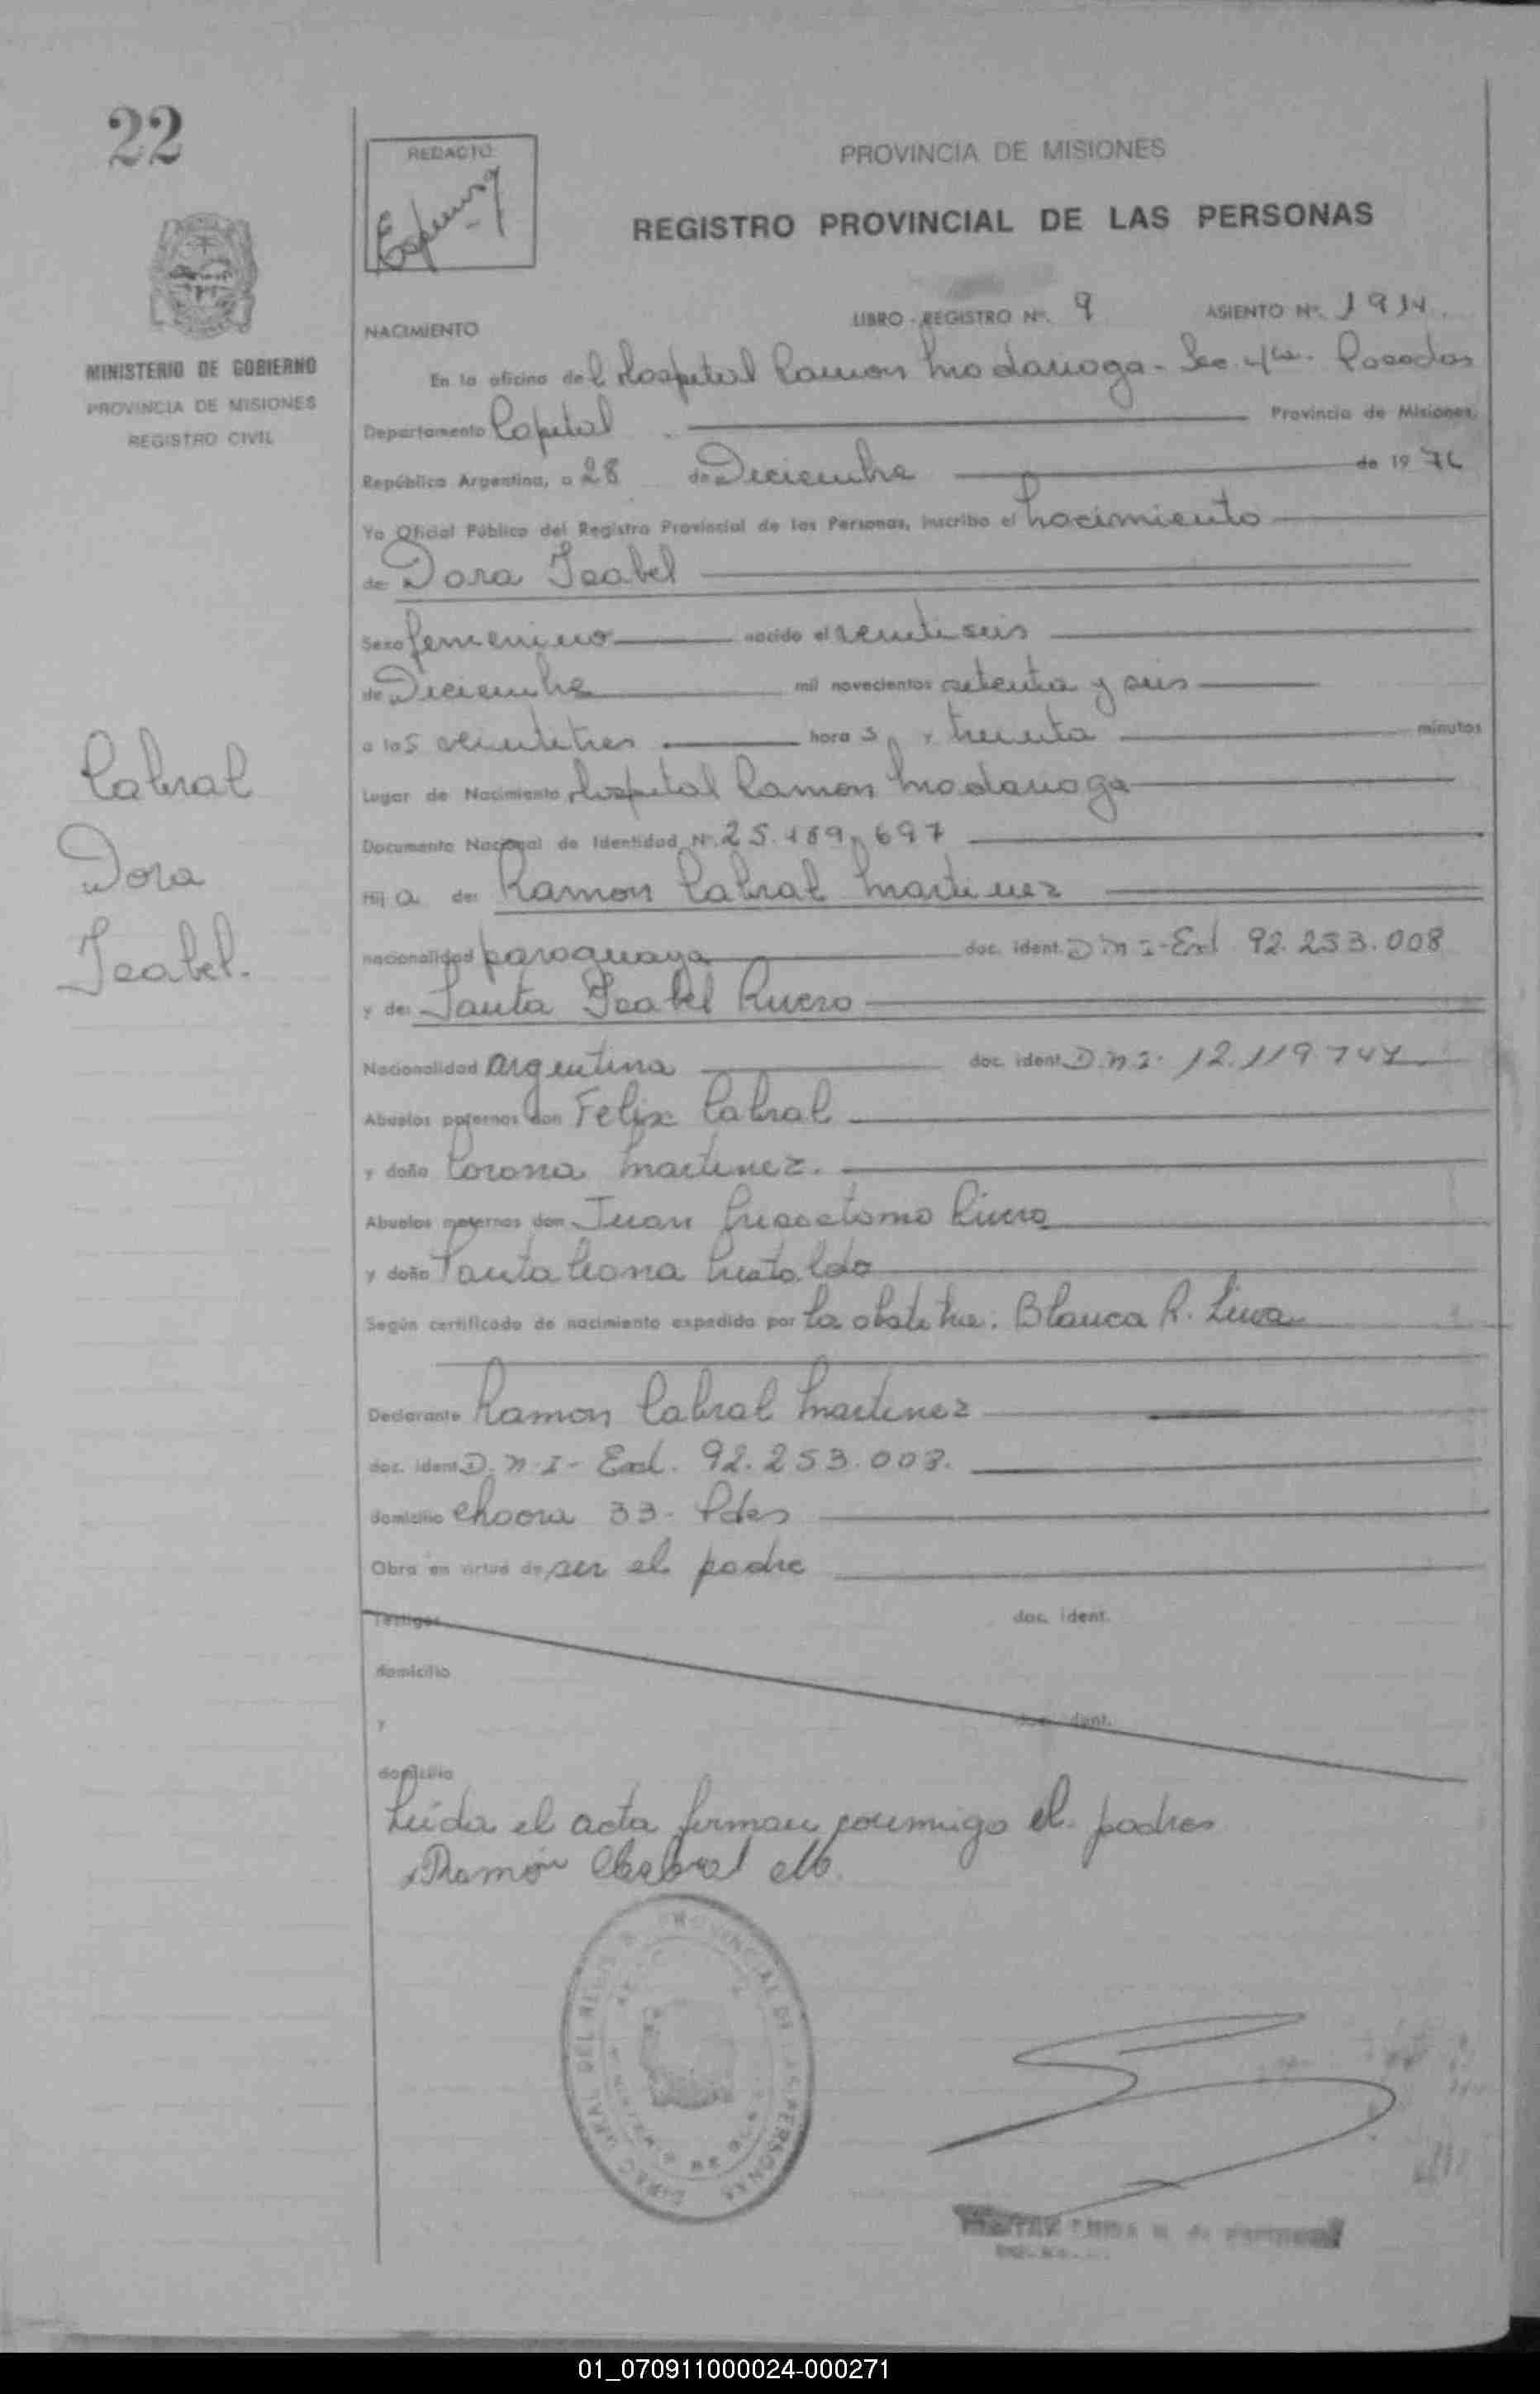 22
REDACTO
PROVINCIA DE MISIONES
REGISTRO PROVINCIAL DE LAS PERSONAS
MINISTERIO DE GOBIERNO
PROVINCIA DE MISIONES
REGISTRO CIVIL
Cabral
Dora
Isabel.
NACIMIENTO LIBRO - REGISTRO Nº. 9 ASIENTO Nº. 1914.
En la oficina del Hospital Ramon Madariaga - Sec. 4ta. Posadas
Departamento Capital Provincia de Misiones,
República Argentina, a 28 de Diciembre de 1976
Yo Oficial Público del Registro Provincial de las Personas, inscribo el nacimiento
de Dora Isabel
Sexo femenino nacido el veintiseis
de Diciembre mil novecientos setenta y seis
a las veintitres hora s y treinta minutos
Lugar de Nacimiento Hospital Ramon Madariaga
Documento Nacional de Identidad Nº. 25.189.697
Hij a de: Ramon Cabral Martinez
nacionalidad paraguaya doc. ident. D N I - Ext 92.253.008
y de: Santa Isabel Rivero
Nacionalidad argentina doc. ident. D.N.I. 12.119.747
Abuelos paternos don Felix Cabral
y doña Corona Martinez.
Abuelos maternos don Juan Crisostomo Rivero
y doña Pantaleona Cristaldo
Según certificado de nacimiento expedido por La obstetra: Blanca R.
Declarante Ramon Cabral Martinez
doc. ident. D.N.I - Ext. 92.253.008.
domicilio chacra 33 - Pdas
Obra en virtud de ser el padre
Testigos doc. ident.
domicilio
y doc. ident.
domicilio
Leida el acta firman conmigo el padres
Ramón Cabral M.
01_070911000024-000271